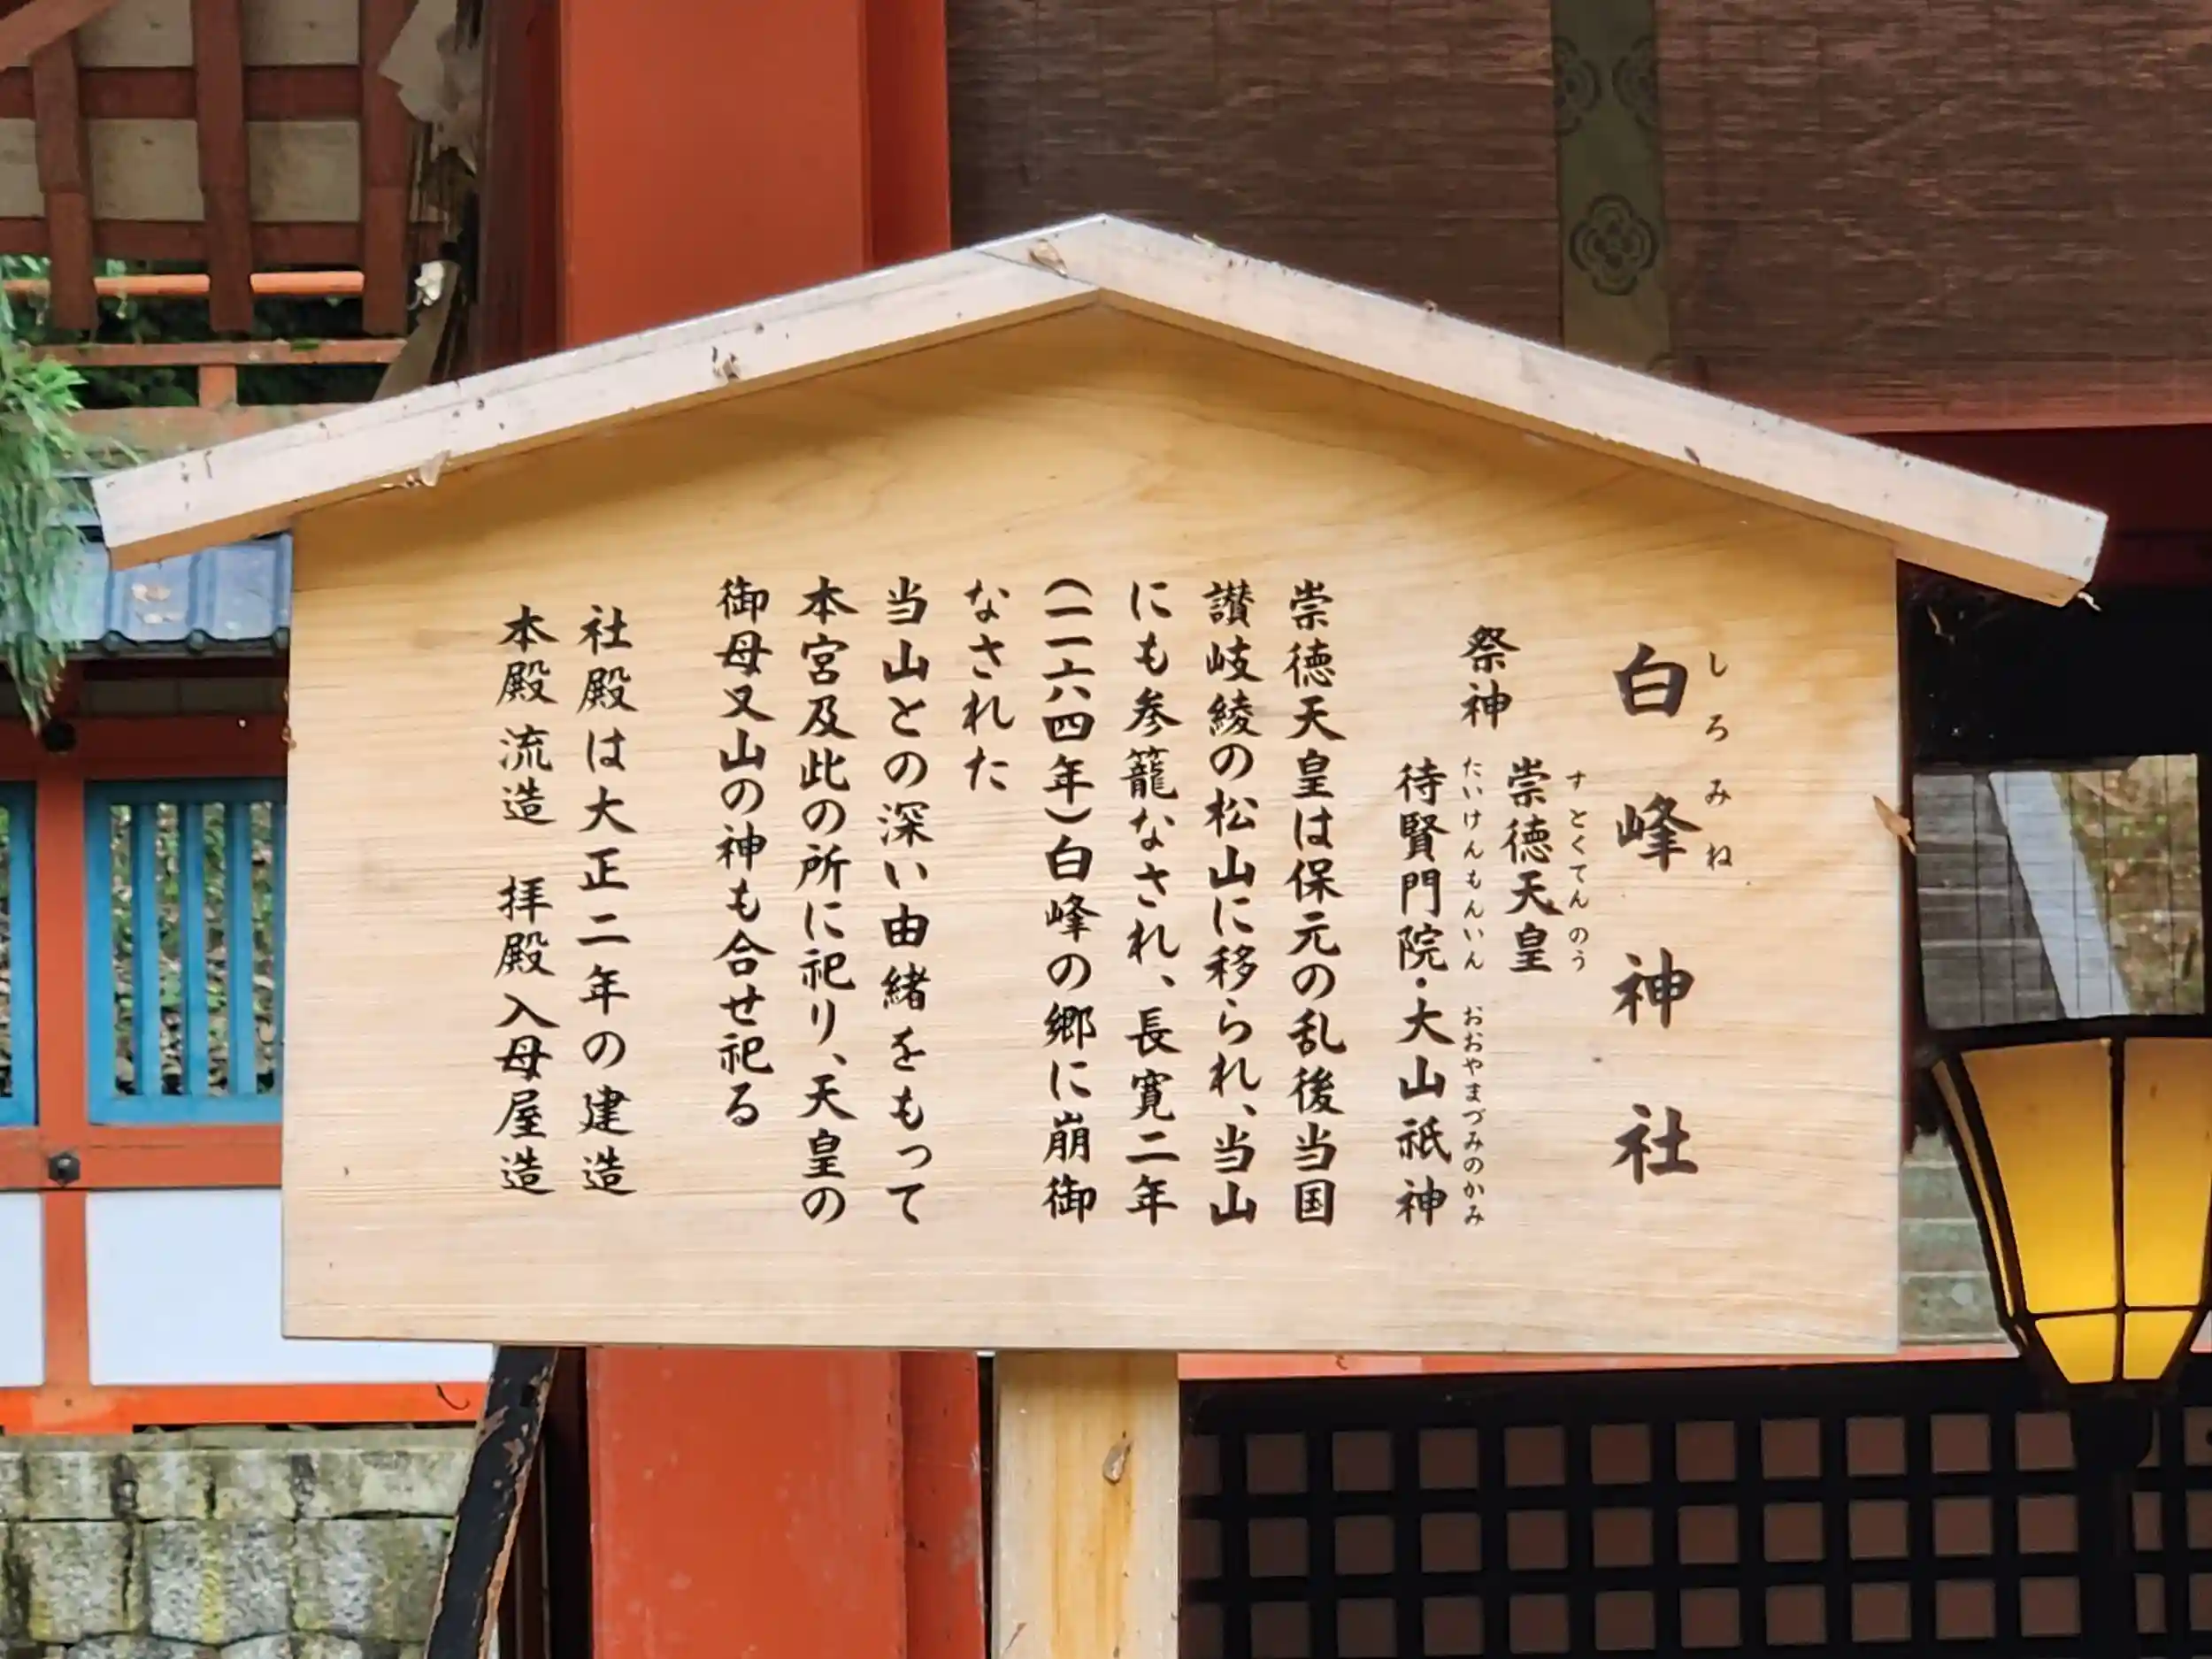 白峰神社
しろみね
祭神
崇徳天皇
すとくてんのう
待賢門院・大山祇神
たいけんもんいん おおやまづみのかみ
崇徳天皇は保元の乱後当国
讃岐綾の松山に移られ、当山
にも参籠なされ、長寛二年
(一一六四年)白峰の郷に崩御
なされた
当山との深い由緒をもって
本宮及此の所に祀り、天皇の
御母又山の神も合せ祀る
社殿は大正二年の建造
本殿 流造 拝殿入母屋造